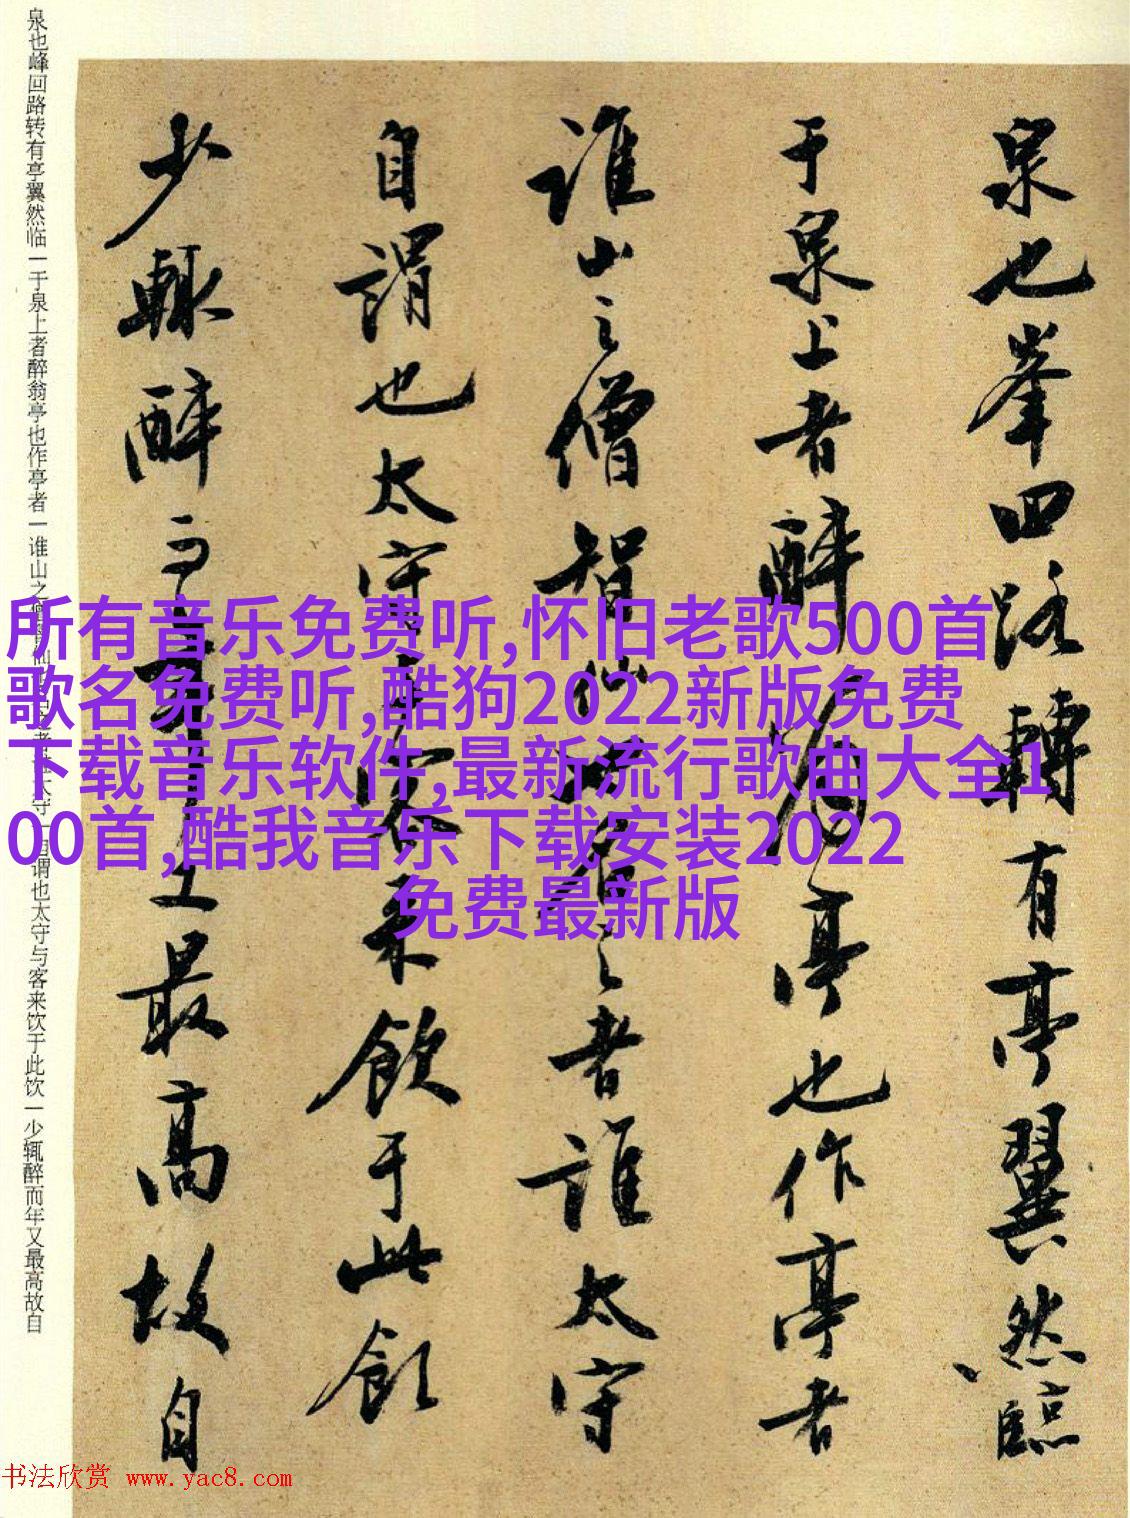 泉也峯回路轉有亭翼然臨
于泉上者醉翁亭也作亭者
誰山之僧智仙也名之者誰太守
自謂也太守與客来飲于此飲
少輒醉而年又最高故自
泉也峰回路转有亭翼然临一于泉上者醉翁亭也作亭者一谁山之僧智仙也名之者谁太守一自谓也太守与客来饮于此饮一少辄醉而年又最高故自
所有音乐免费听,怀旧老歌500首
歌名免费听,酷狗2022新版免费
下载音乐软件,最新流行歌曲大全1
00首,酷我音乐下载安装2022
免费最新版
书法欣赏 www.yac8.com